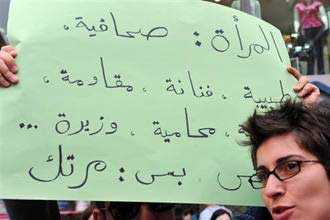 المرأة : صحافية،
طبيبة، فنانة، مقاومة،
، محامية، وزيرة ...
بس : مرتك